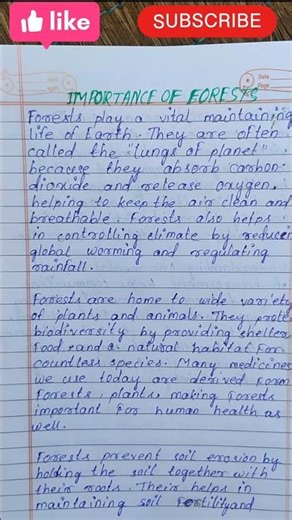 like
SUBSCRIBE
IMPORTANCE OF FORESTS
Forests play a vital maintaining
life of Earth. They are often
called the "lungs of planet"
because they absorb carbon
dioxide and release oxygen,
helping to keep the air clean and
breathable. Forests also helps
in controlling climate by reducer
global worming and regulating
rainfall.
Forests are home to wide variety
of plants and animals. They prote
biodiversity by providing shelter,
food and a natural habitat for
countless species. Many medicines
we use today are derived form
forests, plants, making forests
important for human health as
well.
Forests prevent soil erosion by
holding the soil together with
their roots. Their helps in
maintaining soil fertility and